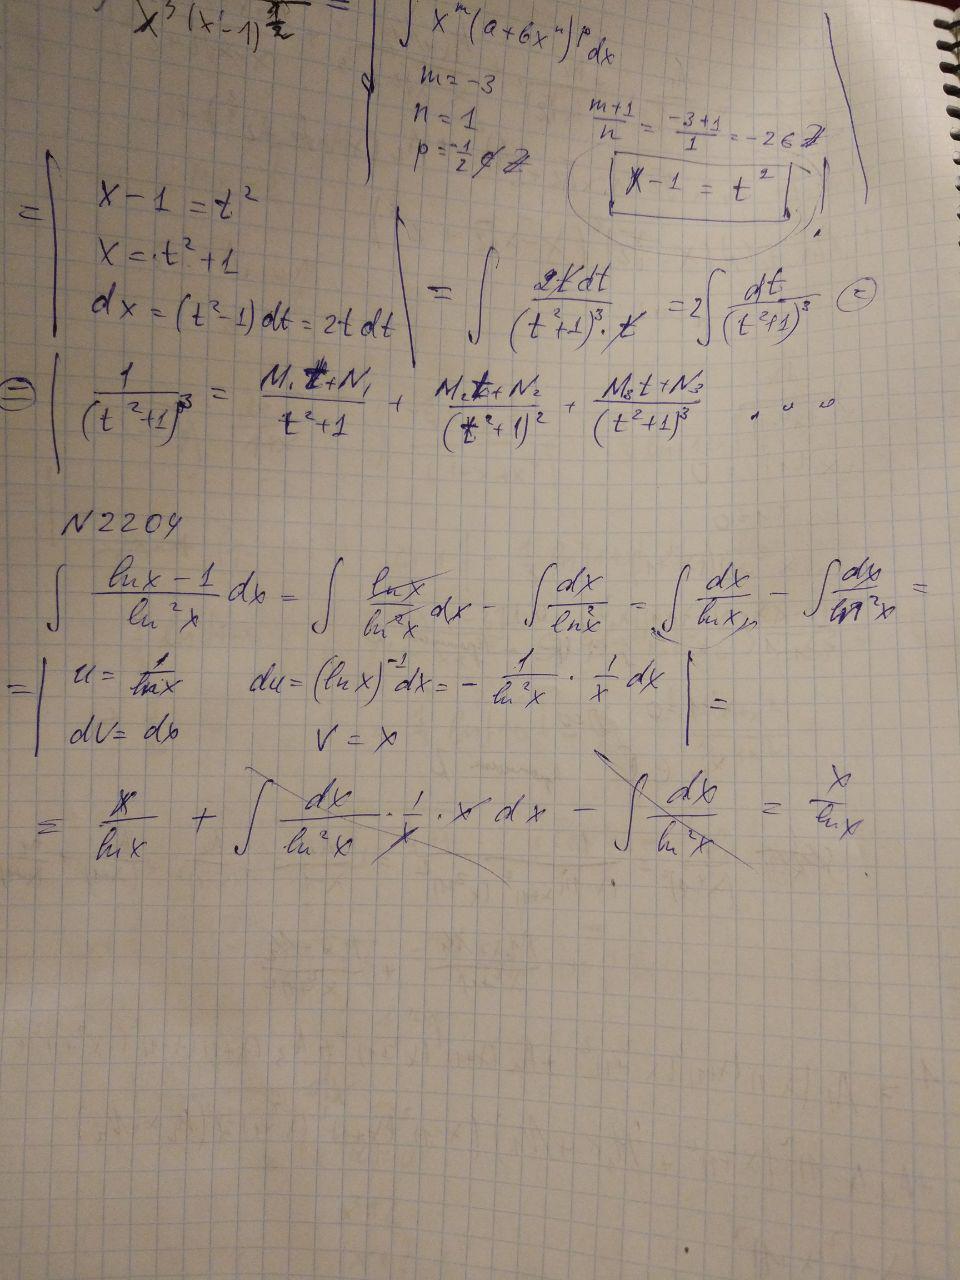 x³(x-1)^½ = | ∫ x^m(a+bx^n)^p dx
m = -3
n = 1
p = -1/2 ∉ Z
(m+1)/n = (-3+1)/1 = -2 ∈ Z
x-1 = t²
= | x-1 = t²
x = t²+1
dx = (t²-1)dt = 2t dt | = ∫ 2t dt/((t²+1)³·t) = 2∫ dt/(t²+1)³ =
= | 1/(t²+1)³ = (M₁t+N₁)/(t²+1) + (M₂t+N₂)/(t²+1)² + (M₃t+N₃)/(t²+1)³ ...
N2204
∫ (lnx-1)/ln²x dx = ∫ lnx/ln²x dx - ∫ dx/ln²x = ∫ dx/lnx - ∫ dx/ln²x =
= | u = 1/lnx du = (lnx)⁻¹dx = - 1/ln²x · 1/x dx | =
dv = dx v = x
= x/lnx + ∫ dx/ln²x · 1/x · x dx - ∫ dx/ln²x = x/lnx